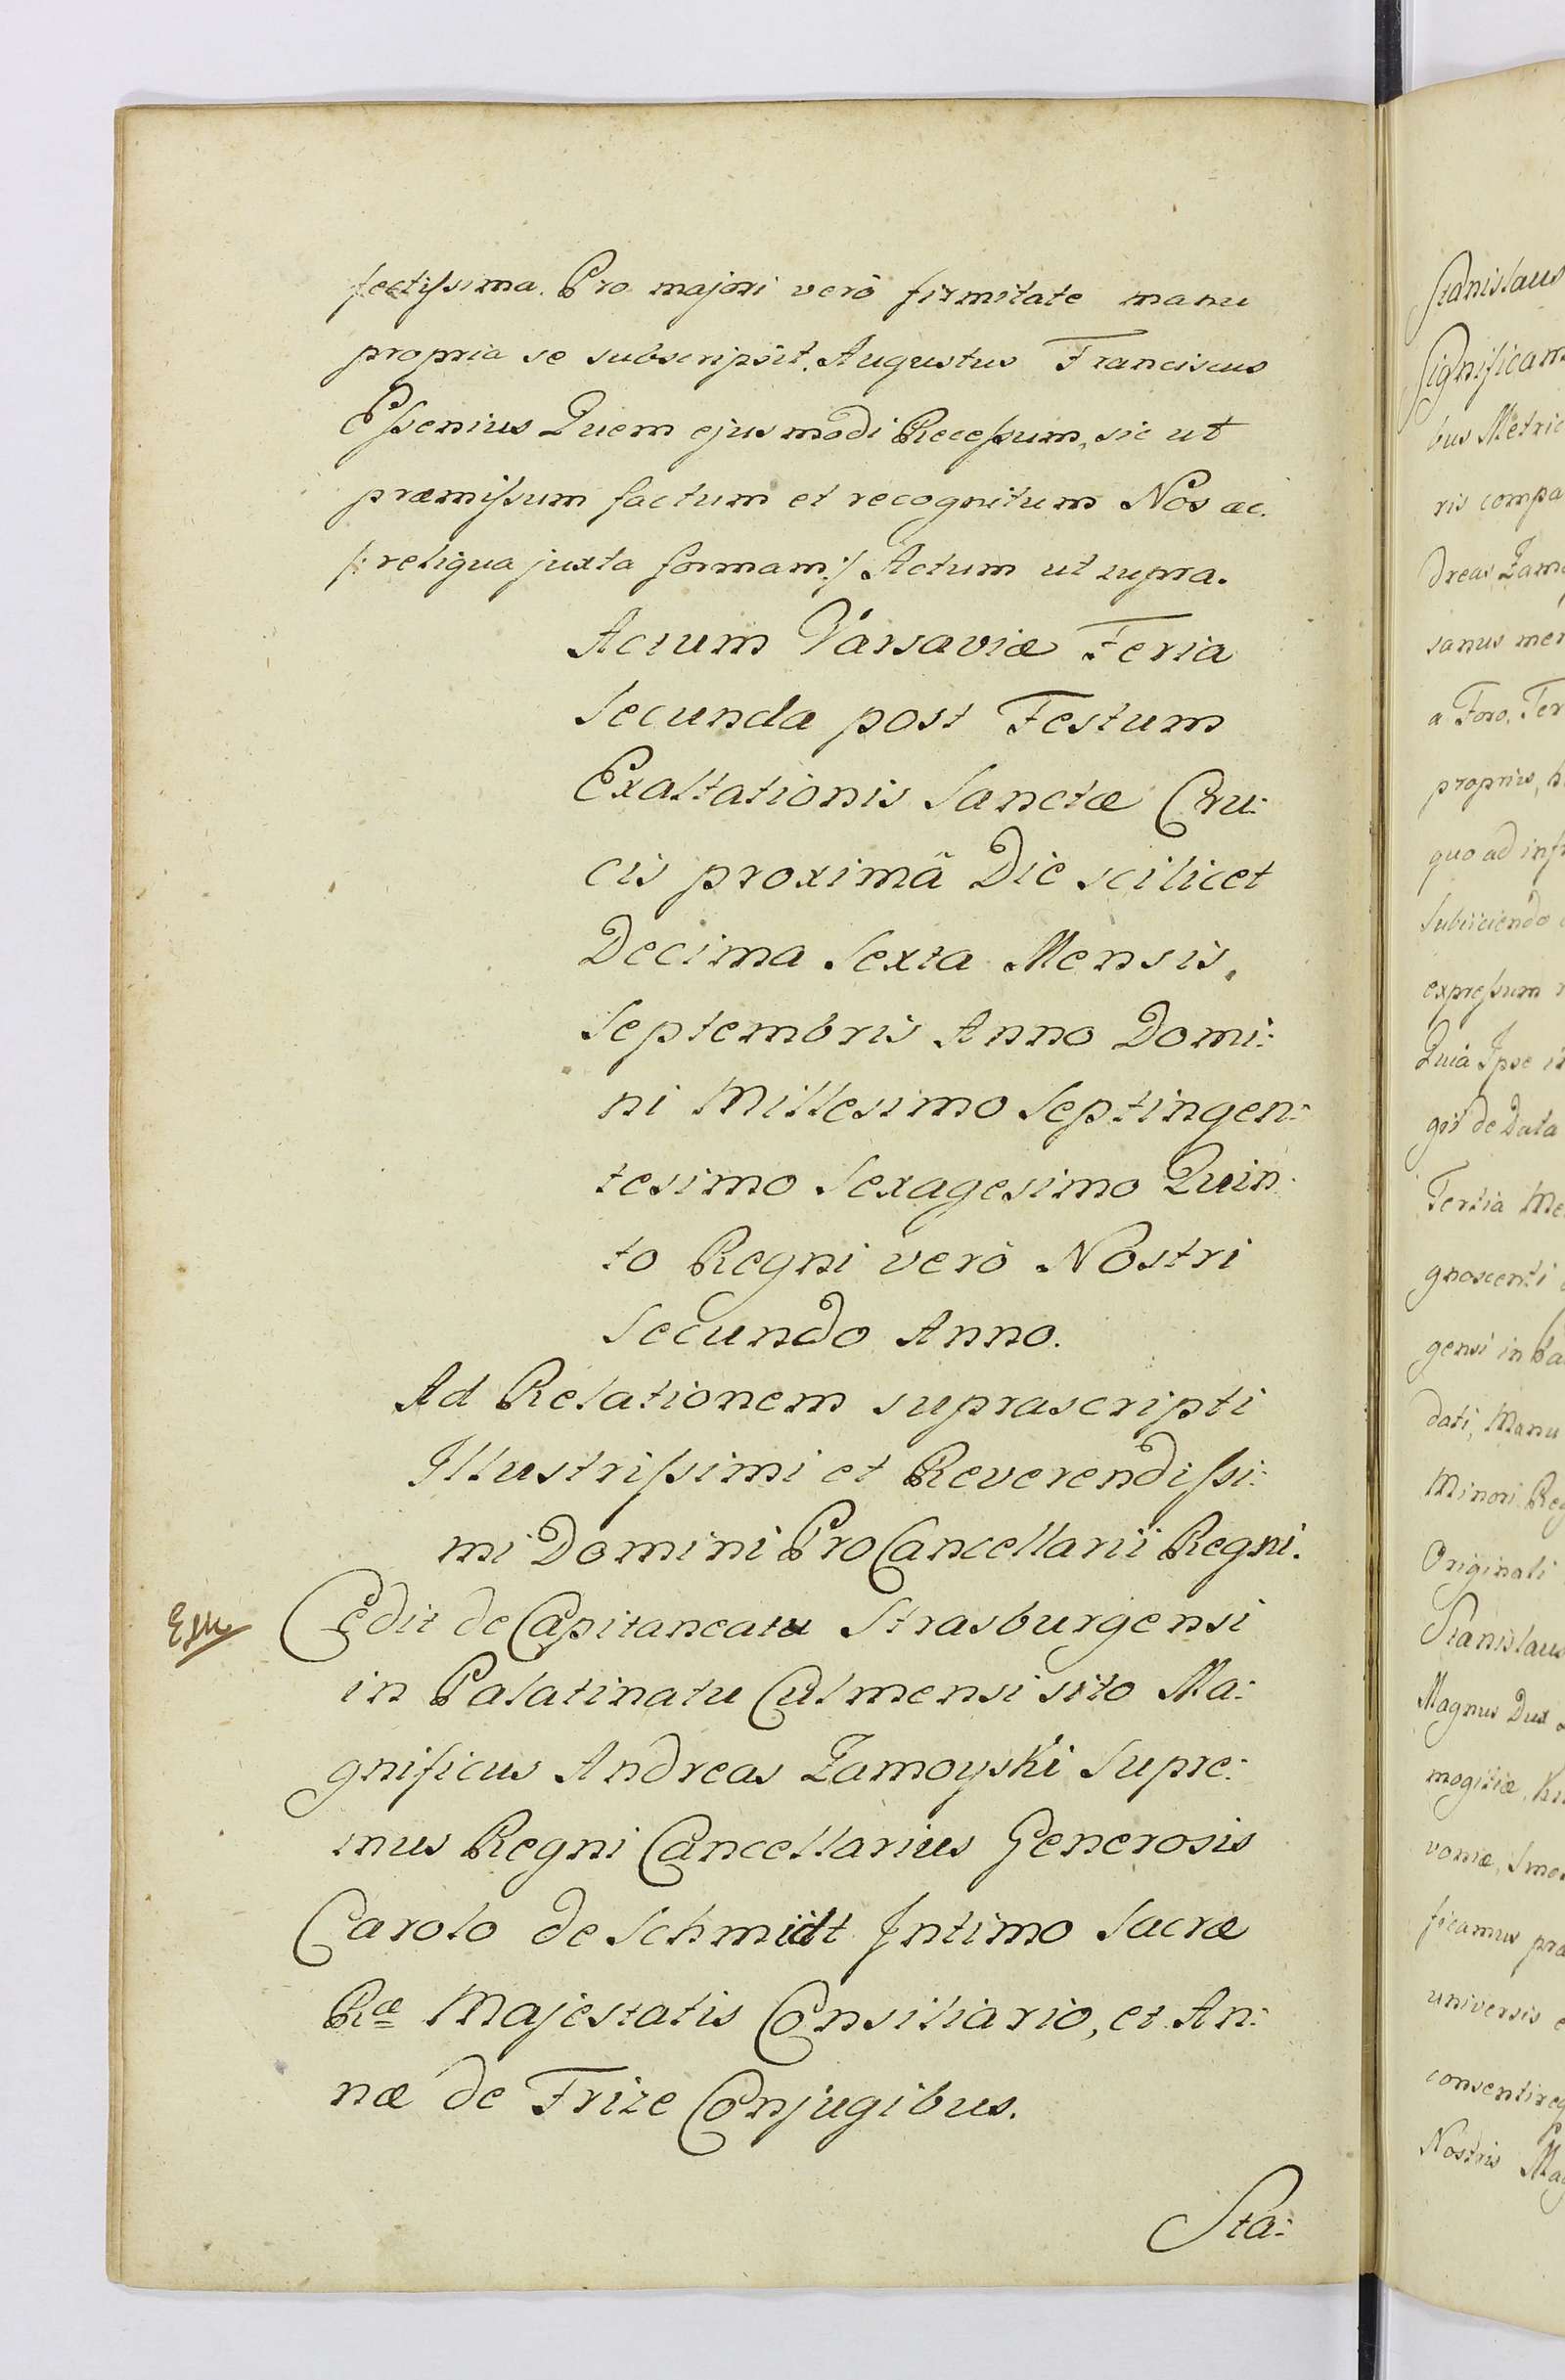 fectissima. Pro majori verò firmitate manu
propria se subscripsit. Augustus Franciscus
Essenius Quem ejusmodi Recessum, sic ut
præmissum factum et recognitum Nos ac.
/: reliqua juxta formam :/ Actum ut supra.
Actum Varsaviæ Feria
Secunda post Festum
Exaltationis Sanctæ Cru:
cis proximâ Die scilicet
Decima Sexta Mensis
Septembris Anno Domi:
ni Millesimo Septingen:
tesimo Sexagesimo Quin:
to Regni verò Nostri
Secundo Anno.
Ad Relationem suprascripti
Illustrissimi et Reverendissi:
mi Domini ProCancellarii Regni.
Cedit de Capitaneatu Strasburgensi
in Palatinatu Culmensi sito Ma:
gnificus Andreas Zamoyski Supre:
mus Regni Cancellarius Generosis
Carolo de Schmidt Intimo Sacræ
Ræ Majestatis Consiliario, et An:
næ de Frize Conjugibus.
Sta:
Stanislaus
Significam
bus Metric
ris compa
dreas Zamo
sanus men
a Foro, Ter
propriis, h
quo ad infr
Subiiciendo
expressum
Quia Ipse
git de Data
Tertia Me
gnoscenti
gensi in Pa
dati, Manu
Minori Reg
Originali
Stanislaus
Magnus Dux
mogitiæ, Ki
voniæ, Smo
ficamus præ
universis
consentireq
Nostris Mag